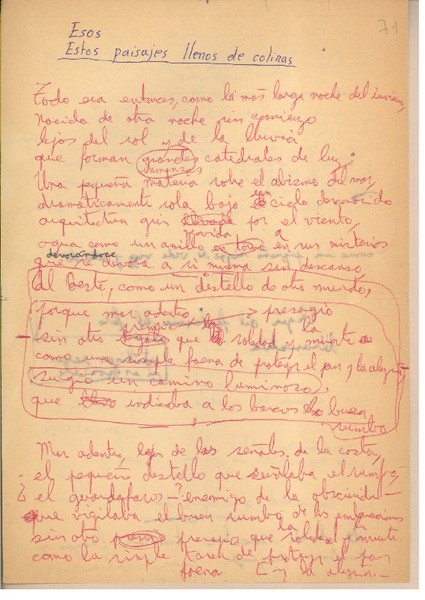 Esos
71
Estos paisajes llenos de colinas
Todo era entonces, como la más larga noche del invierno,
nacida de otra noche sin comienzo
lejos del sol y de la lluvia
que forman grandes catedrales de luz;
inmensas
Una pequeña materia sobre el abismo del mar,
dramáticamente sola bajo el cielo desconocido
arquitectura gris llevada por el viento,
movida a
o agua como un anillo en torno en sus misterios
devorándose
que se devora a si misma sin descanso
Al Oeste, como un destello de otro mundo,
porque mar adentro, presagio
sin otro que la soledad y muerte
como una simple faena de proteger el pan y la alegría
surgió un camino luminoso,
que indicaba a los barcos buen
rumbo
Mar adentro, lejos de las señales de la costa,
el pequeño destello que señalaba el rumbo,
¿ el guardafaros — enemigo de la obscuridad —
que vigilaba el buen rumbo de las embarcaciones
sin otro presagio que la soledad y muerte
como la simple tarea de proteger el pan
faena y la alegría.—